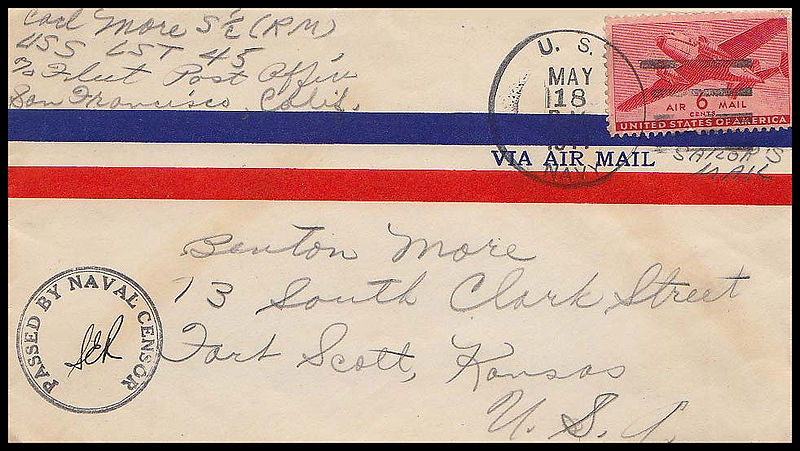 Carl More S½ (RM)
USS LST 45
℅ Fleet Post Office
San Francisco, Calif.
U. S.
MAY
18
NAVY
AIR 6 MAIL
CENTS
UNITED STATES OF AMERICA
VIA AIR MAIL
SAILOR'S
MAIL
Benton More
13 South Clark Street
Fort Scott, Kansas
U. S. A.
PASSED BY NAVAL CENSOR